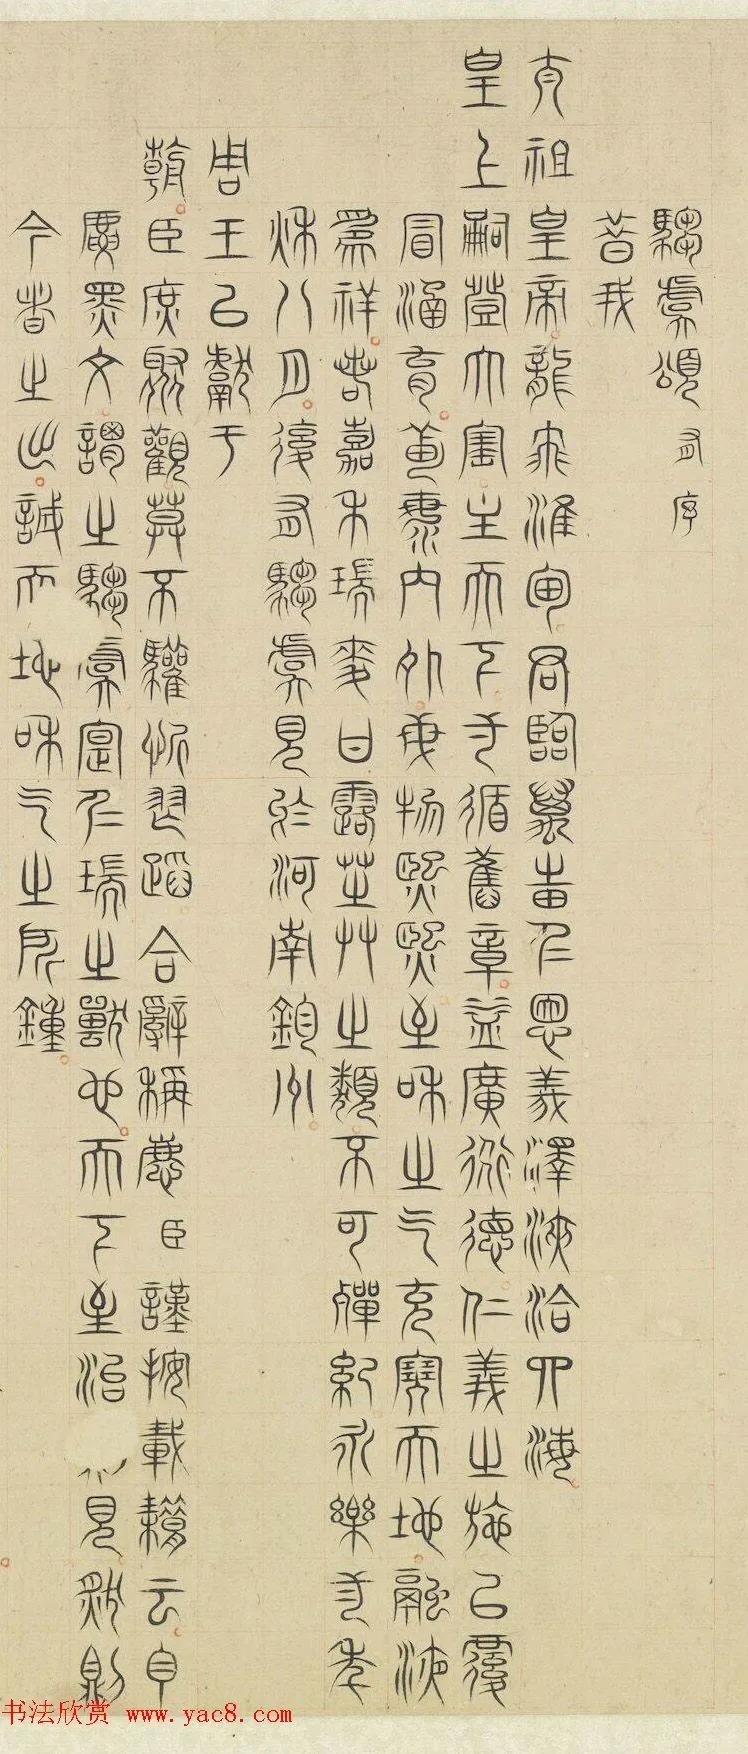 騶虞頌 有序
昔我
太祖皇帝龍飛淮甸君臨萬邦仁恩義澤浹洽四海
皇上嗣登大寶主天下循舊章益廣衍德仁義之施以覆
冒涵育內外熙熙至和之气充天地融浹
為祥若嘉禾瑞麥甘露芝草之類不可殫紀永樂年
秋八月復有騶虞見於河南鈞州
周王以獻于
朝臣庶聚觀莫不驩忻蹈合辭稱慶臣謹按載籍云白
虎黑文謂之騶虞寔仁瑞之獸也天下至治見然則
今者之出誠天地和气之所鍾
书法欣赏 www.yac8.com